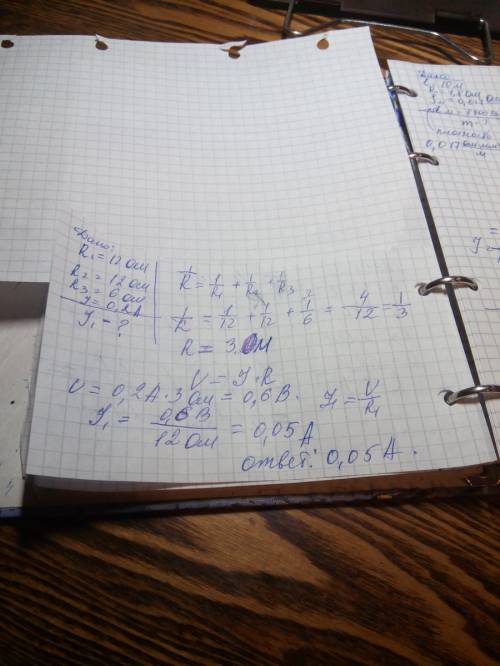 Дано:
R₁ = 12 Ом
R₂ = 12 Ом
R₃ = 6 Ом
J = 0,2 А
J₁ - ?
1/R = 1/R₁ + 1/R₂ + 1/R₃
1/R = 1/12 + 1/12 + 1/6 = 4/12 = 1/3
R = 3 Ом
V = J · R
V = 0,2 А · 3 Ом = 0,6 В. J₁ = V/R₁
J₁ = 0,6 В / 12 Ом = 0,05 А
ответ: 0,05 А.
Дано